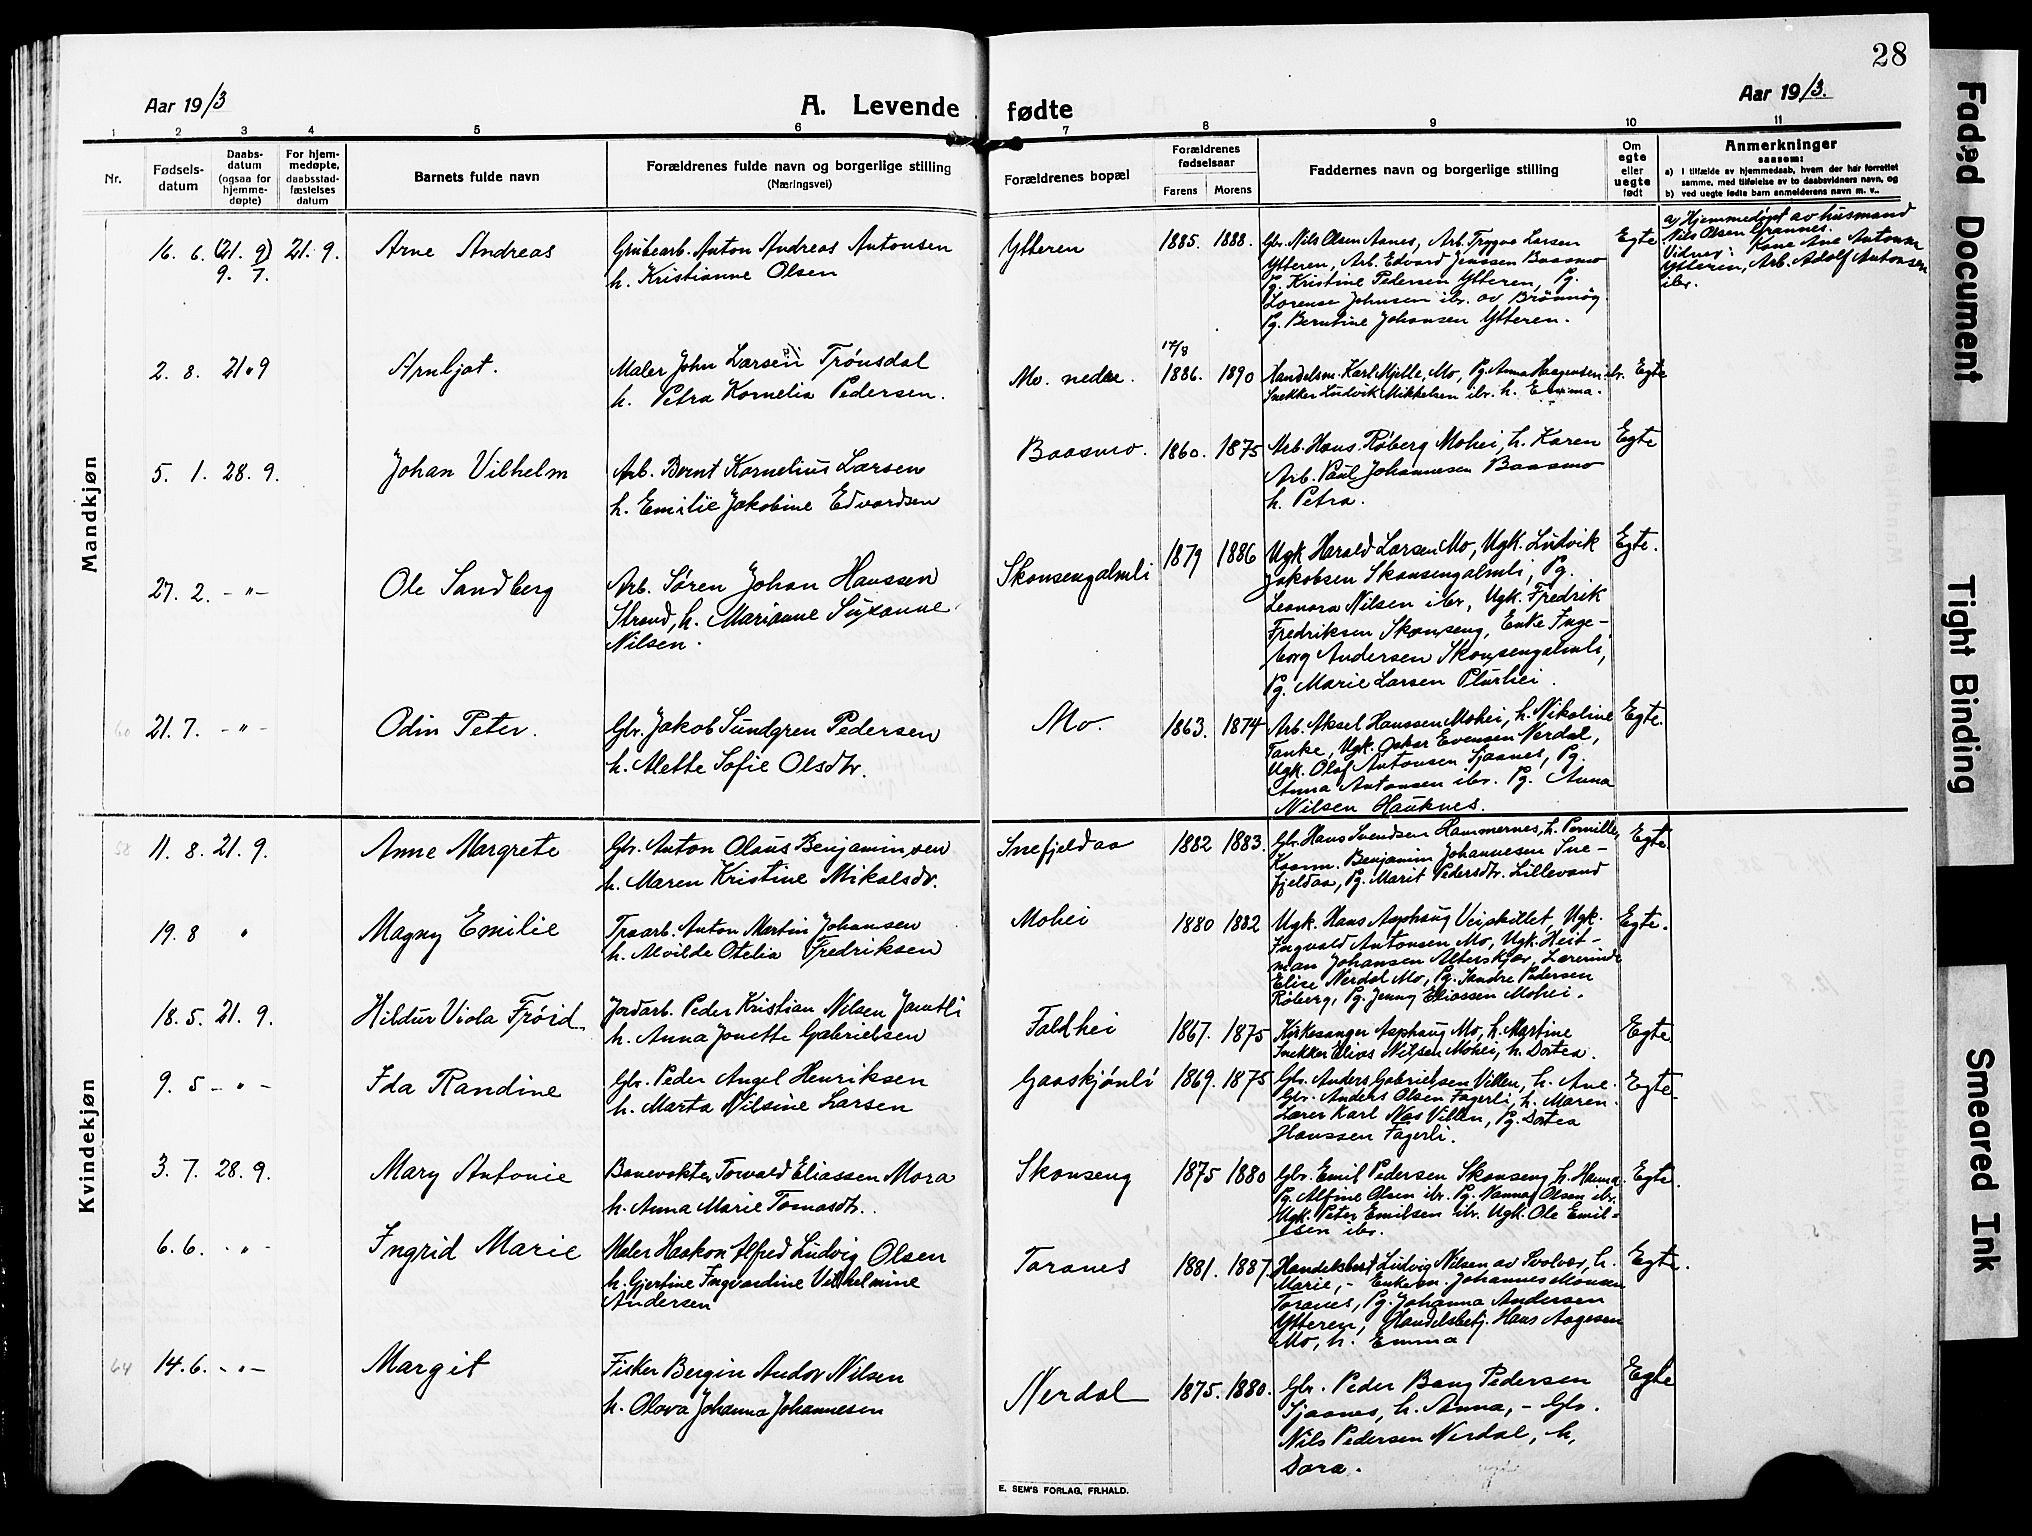 28
Aar 1913
A. Levende fødte
Aar 1913.
1 2 3 4 5 6 7 8 9 10 11
Nr.
Fødsels-
datum
Daabs-
datum
(ogsaa for
hjemme-
døpte)
For hjem-
medøpte,
daabsstad-
fæstelses
datum
Barnets fulde navn
Forældrenes fulde navn og borgerlige stilling
(Næringsvei)
Forældrenes bopæl
Forældrenes
fødselsaar
Farens Morens
Faddernes navn og borgerlige stilling
Om
egte
eller
uegte
født
Anmerkninger
saasom:
a) I tilfælde av hjemmedaab, hvem der har forrettet
samme, med tilføielse av to daabsvidners navn, og
b) ved uegte fødte barn anmelderens navn m. v..
Mandkjøn
16. 6. (21. 9) 21. 9.
9. 7.
Arne Andreas
Grubearb. Anton Andreas Antonsen
h. Kristianne Olsen
Ytteren
1885. 1888.
Gbr. Nils Olsen Aanes, Arb. Trygve Larsen
Ytteren, Arb. Edvard Jenssen Baasmo
Pg. Kristine Pedersen Ytteren, Pg.
Lorense Johnsen ibr. av Brönnög
Pg. Berntine Johansen Ytteren.
Egte
a) Hjemmedöpt av husmand
Nils Olsen Grannes.
Vidner: Kone Ane Antonsen
Ytteren, Arb. Adolf Antonsen
ibr.
2. 8. 21 " 9
Arnljot.
Maler John Larsen Trönsdal
h. Petra Kornelia Pedersen.
Mo. nedre.
17/8
1886. 1890
Handelsm. Karl Hjelle, Mo, Pg. Anna Haagensen ibr.
Snekker Ludvik Mikkelsen ibr. h. Emma.
Egte
5. 1. 28. 9.
Johan Vilhelm
Arb. Bernt Kornelius Larsen
h. Emilie Jakobine Edvardsen
Baasmo.
1860. 1875
Arb. Hans Röberg Mohei, h. Karen
Arb. Paul Johannesen Baasmo
h. Petra.
Egte
27. 2. - " -
Ole Sandberg
Arb. Sören Johan Hanssen
Strand, h. Marianne Susanne
Nilsen.
Skonsengalmli
1879 1886
Ugk. Harald Larsen Mo, Ugk. Ludvik
Jakobsen Skonsengalmli, Pg.
Leonora Nilsen ibr, Ugk. Fredrik
Fredriksen Skonseng, Enke Inge-
borg Andersen Skonsengalmli,
Pg. Marie Larsen Plurhei.
Egte.
60 21. 7. - " -
Odin Peter.
Gbr. Jakob Sundgren Pedersen
h. Alette Sofie Olsdtr.
Mo.
1863. 1874
Arb. Aksel Hanssen Mohei, h. Nikoline
Tanke, Ugk. Oskar Evensen Nerdal,
Ugk. Olaf Antonsen Sjaanes, Pg.
Anna Antonsen ibr. Pg. Anna
Nilsen Hauknes.
Egte.
Kvindekjøn
58 11. 8. 21. 9.
Anne Margrete
Gbr. Anton Olaus Benjaminsen
h. Maren Kristine Mikalsdr.
Snefjeldaa
1882 1883.
Gbr. Hans Svendsen Hammernes, h. Pernille,
Kaarm. Benjamin Johannesen Sne-
fjeldaa, Pg. Marit Pedersdtr. Lillevand
Egte.
19. 8 "
Magny Emilie
Traarb. Anton Martin Johansen
h. Alvilde Otelia Fredriksen
Mohei
1880 1882
Ugk. Hans Asphaug Veiskillet, Ugk.
Ingvald Antonsen Mo, Ugk. Heit-
man Johansen Alterskjær, Lærerinde
Elise Nerdal Mo, Pg. Sandra Pedersen
Röberg, Pg. Jenny Eliassen Mohei.
Egte.
18. 5. 21. 9.
Hildur Viola Fröid
Jordarb. Peder Kristian Nilsen Jamtli
h. Anna Jonette Gabrielsen
Faldhei
1867. 1875
Kirkesanger Asphaug Mo, h. Martine
Snekker Elias Nilsen Mohei, h. Dortea.
Egte
9. 5 - " -
Ida Randine
Gbr. Peder Angel Henriksen
h. Marta Nilsine Larsen
Gaaskjönli
1869. 1875
Gbr. Anders Gabrielsen Villen, h. Ane.
Gbr. Anders Olsen Fagerli, h. Maren.
Lærer Karl Næs Villen, Pg. Dortea
Hanssen Fagerli.
Egte.
3. 7. 28. 9.
Mary Antonie
Banevokter Torvald Eliassen Mora
h. Anna Marie Tomasdtr.
Skonseng
1875 1880
Gbr. Emil Pedersen Skonseng h. Hanna.
Pg. Alfine Olsen ibr. Pg. Nanna Olsen ibr.
Ugk. Peter Emilsen ibr. Ugk. Ole Emil-
sen ibr.
Egte.
6. 6. - " -
Ingrid Marie
Maler Haakon Alfred Ludvig Olsen
h. Gjertine Ingvardine Vilhelmine
Andersen
Toranes
1881. 1887
Handelsbest. Ludvig Nilsen av Svolvær, h.
Marie, - Enkem. Johannes Monsen
Toranes, Pg. Johanna Andersen
Ytteren, Handelsbetj. Hans Aagesen
Mo, h. Emma.
Egte.
64 14. 6. - " -
Margit
Fisker Bergin Andor Nilsen
h. Olava Johanna Johannesen
Nerdal
1875. 1880.
Gbr. Peder Bang Pedersen
Sjaanes, h. Anna, - Gbr.
Nils Pedersen Nerdal, h.
Dora.
Egte
E. SEM'S FORLAG, FR.HALD.
Faded Document
Tight Binding
Smeared Ink